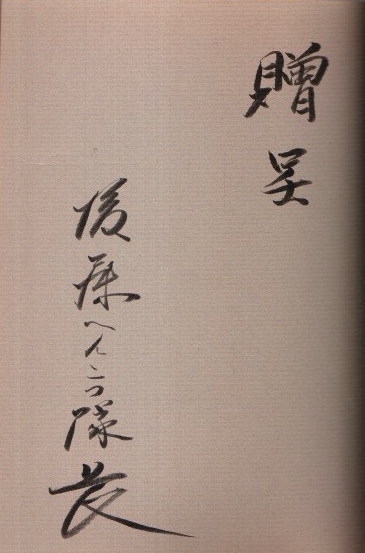 贈呈
へんこつ隊長